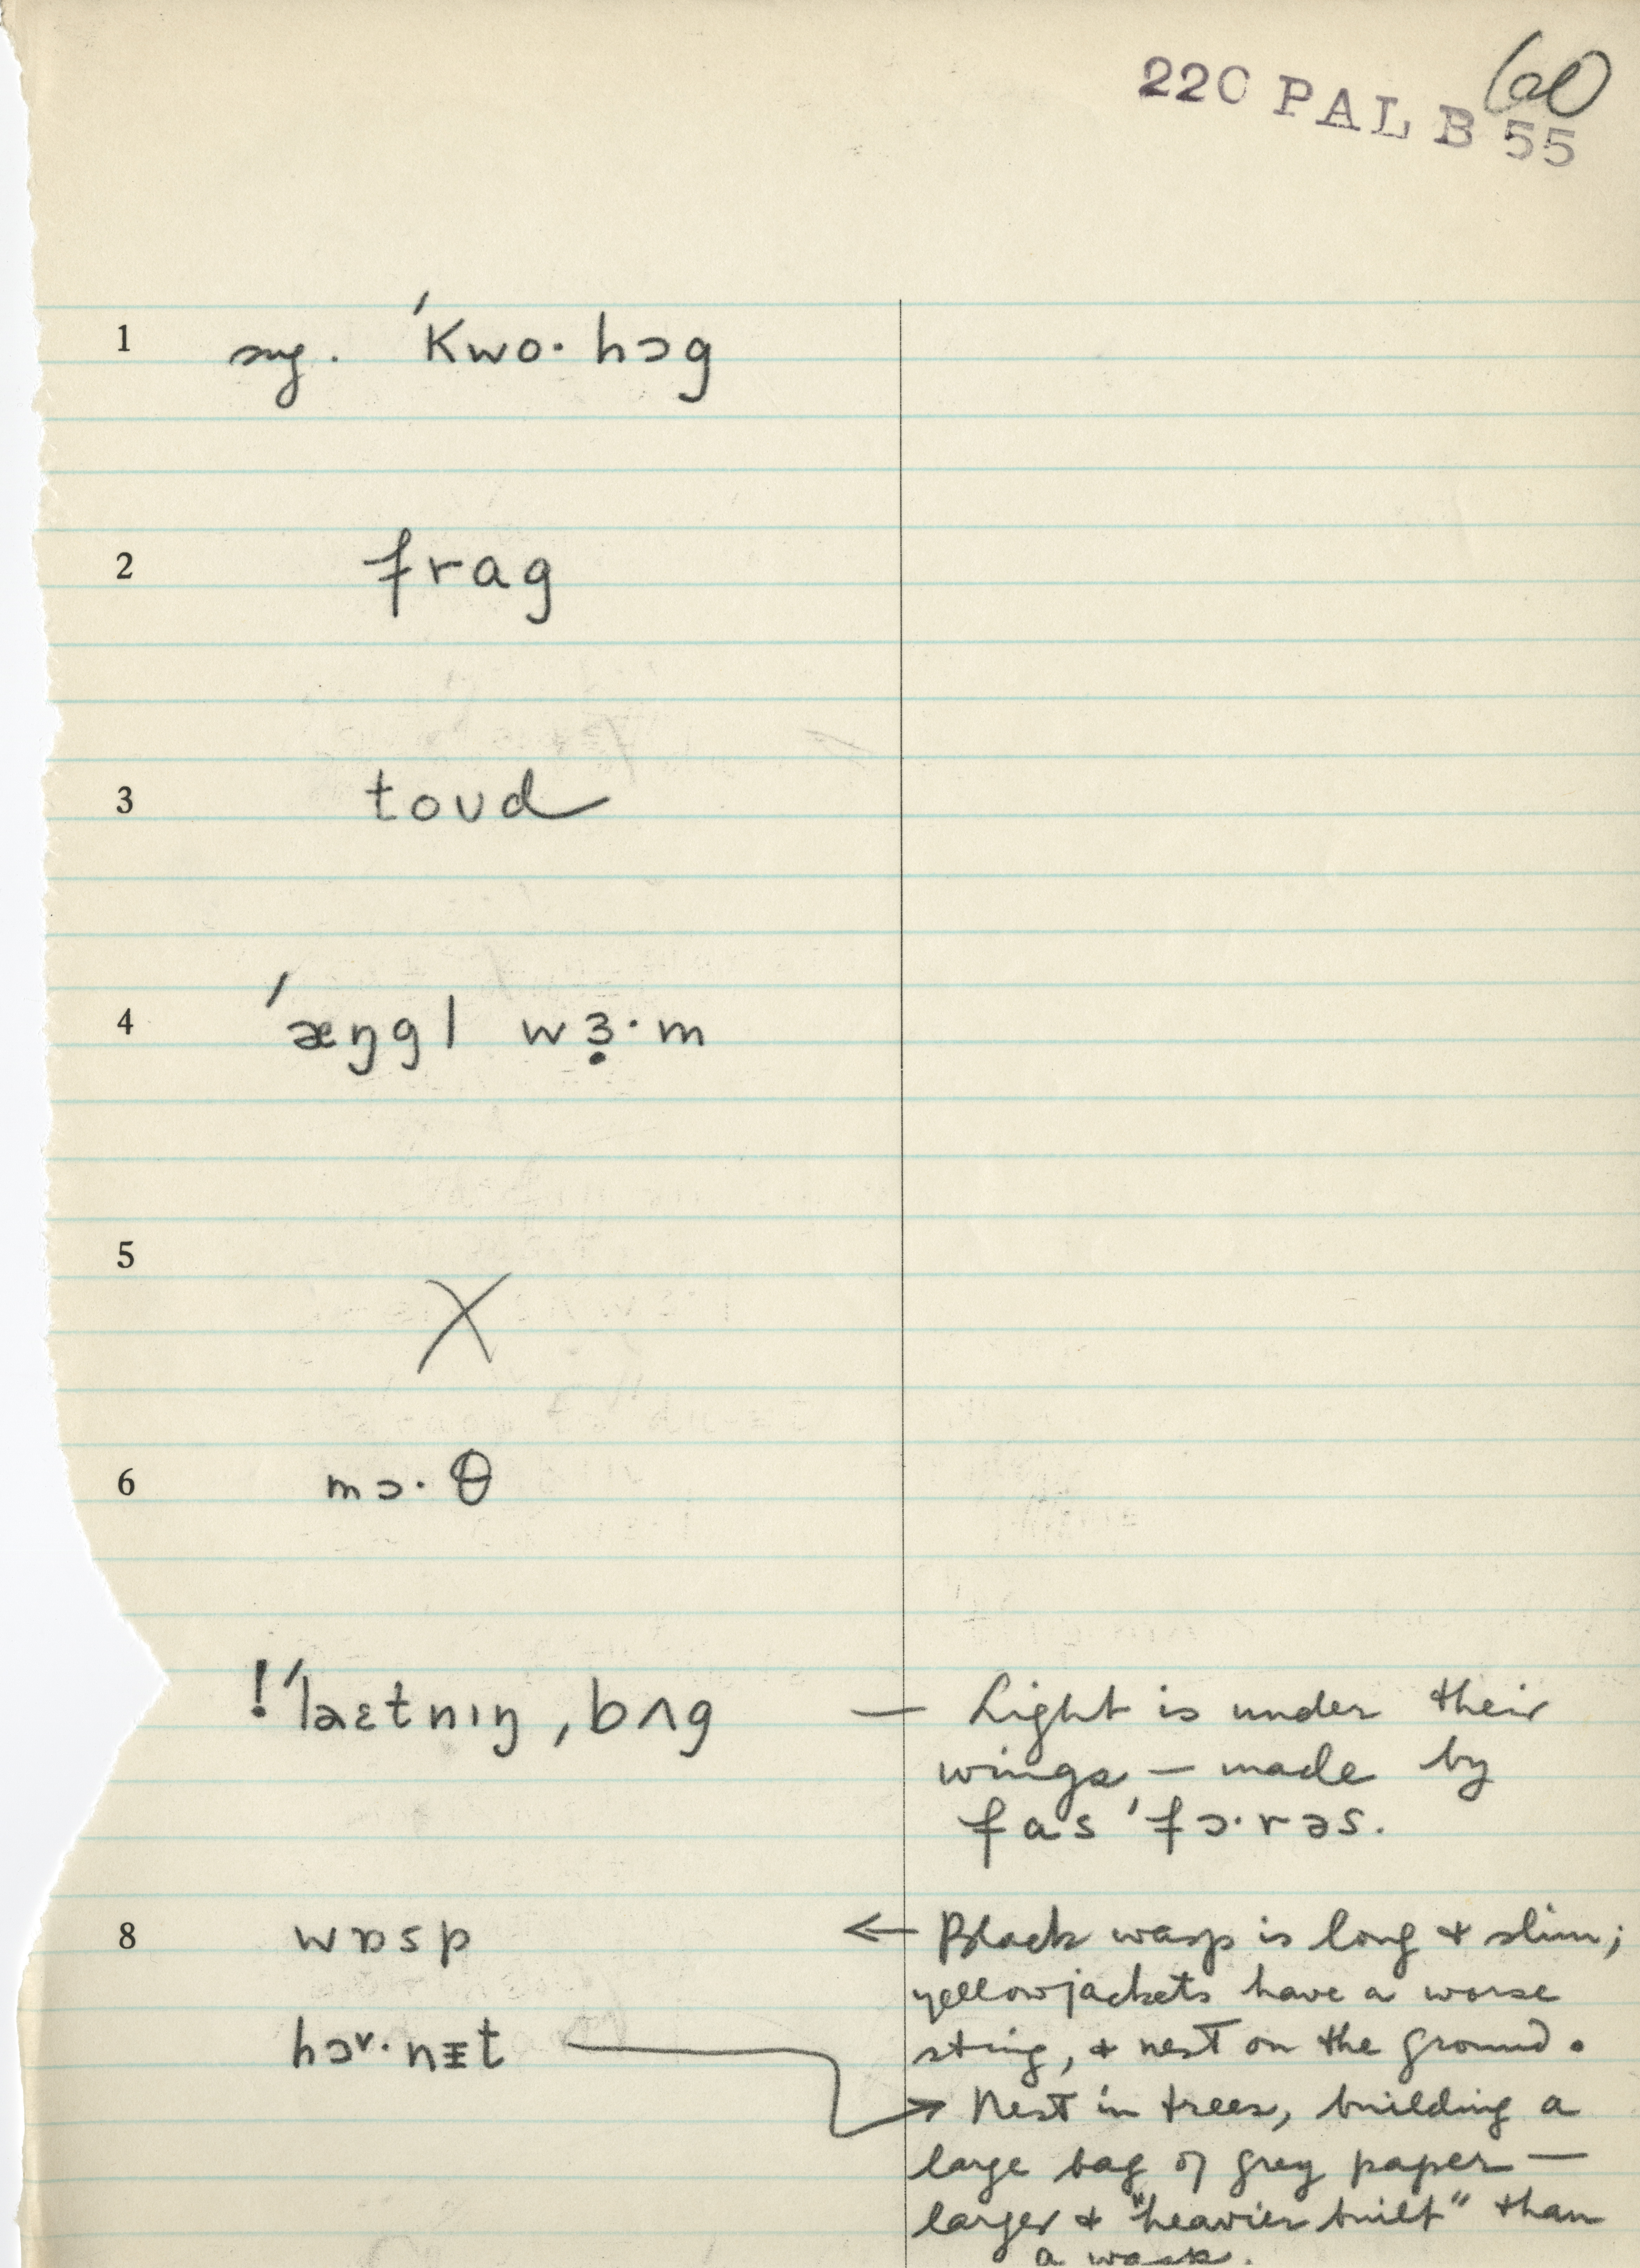 60
220 PAL B 55
1 sug. ˈkwo·hɔg
2 frag
3 toʊd
4 ˈæŋgl wɜ̣·m
5 X
6 mɔ·θ
!ˈlaɛtnɪŋ ˌbʌg — Light is under their
wings — made by
fasˈfɔ·rəs.
8 wɒsp ← Black wasp is long & slim;
yellowjackets have a worse
sting, & nest on the ground.
hɔɚ·nɪ̵t → Nest in trees, building a
large bag of grey paper —
larger & "heavier built" than
a wasp.